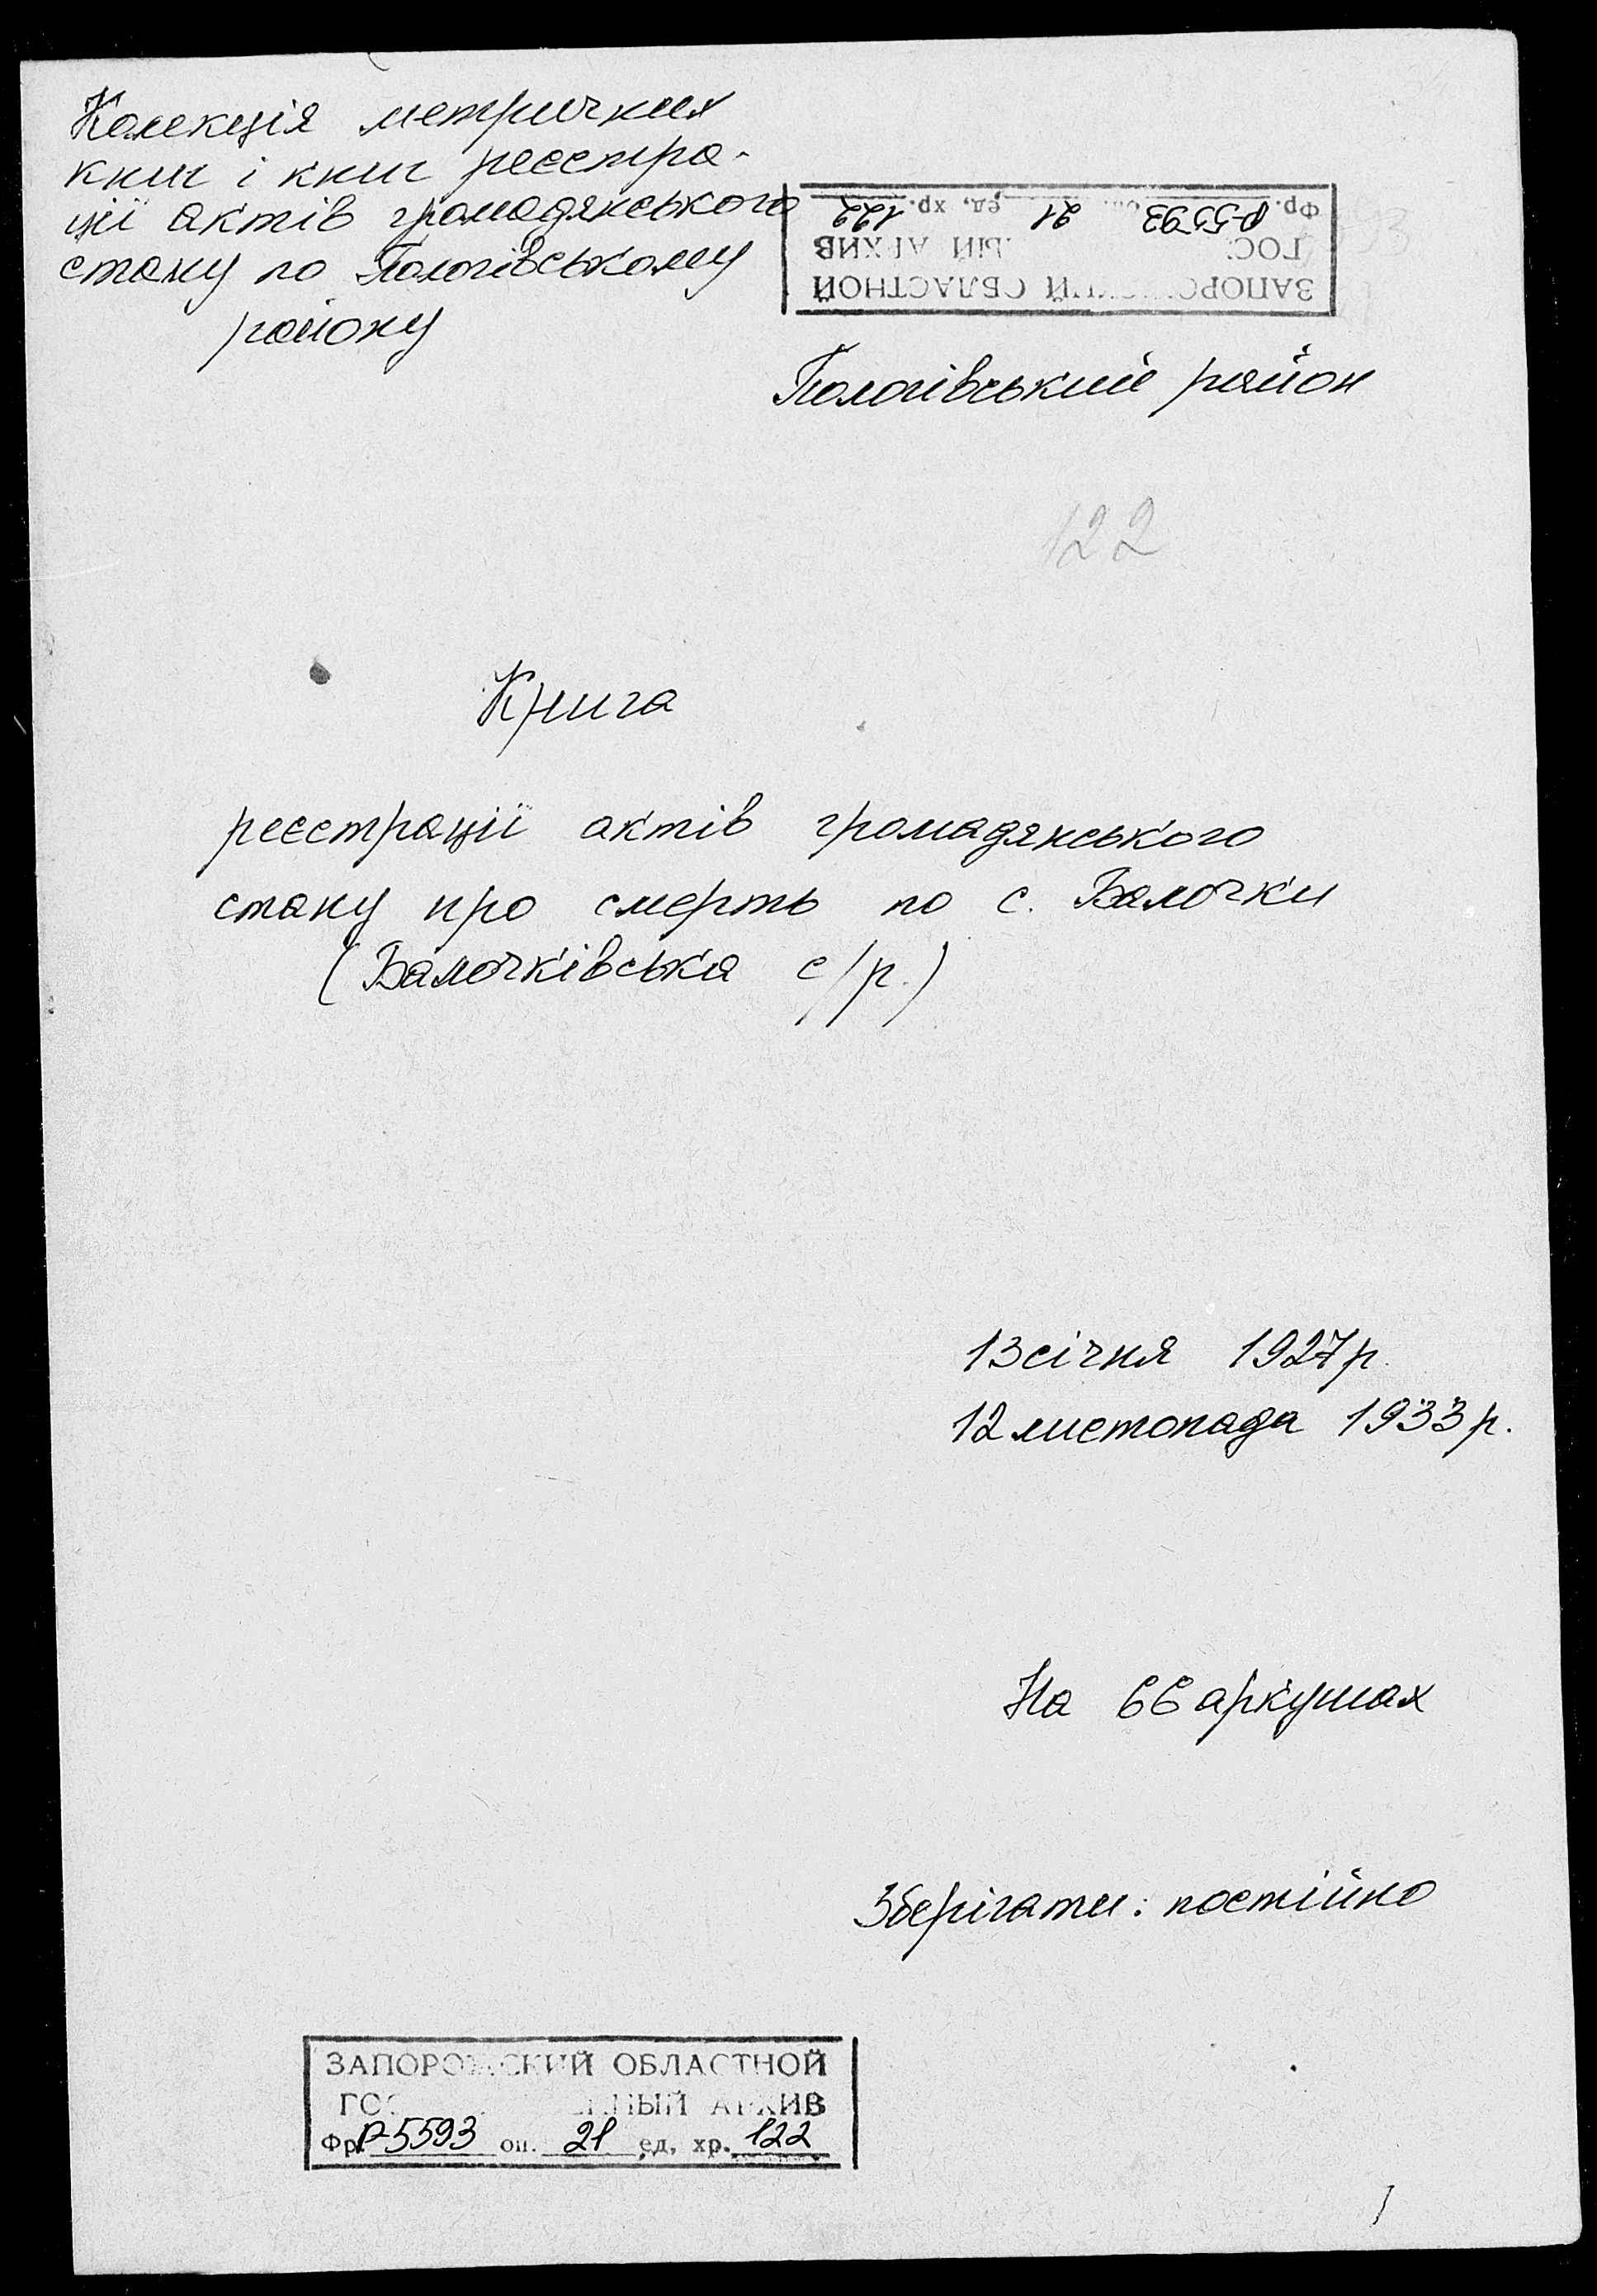 Колекція метричних
книг і книг реєстра-
ції актів громадянського
стану по Пологівському
району
Фр. Р-5593 оп. 21 ед. хр. 122
ГОС. ЫЙ АРХИВ
ЗАПОРОЖСКИЙ ОБЛАСТНОЙ
Пологівський район
122
Книга
реєстрації актів громадянського
стану про смерть по с. Балочки
(Балочківська с/р.)
13 січня 1927 р.
12 листопада 1933 р.
На 66 аркушах
Зберігати: постійно
ЗАПОРОЖСКИЙ ОБЛАСТНОЙ
ГОС ЕННЫЙ АРХИВ
Фр. Р-5593 оп. 21 ед. хр. 122
1